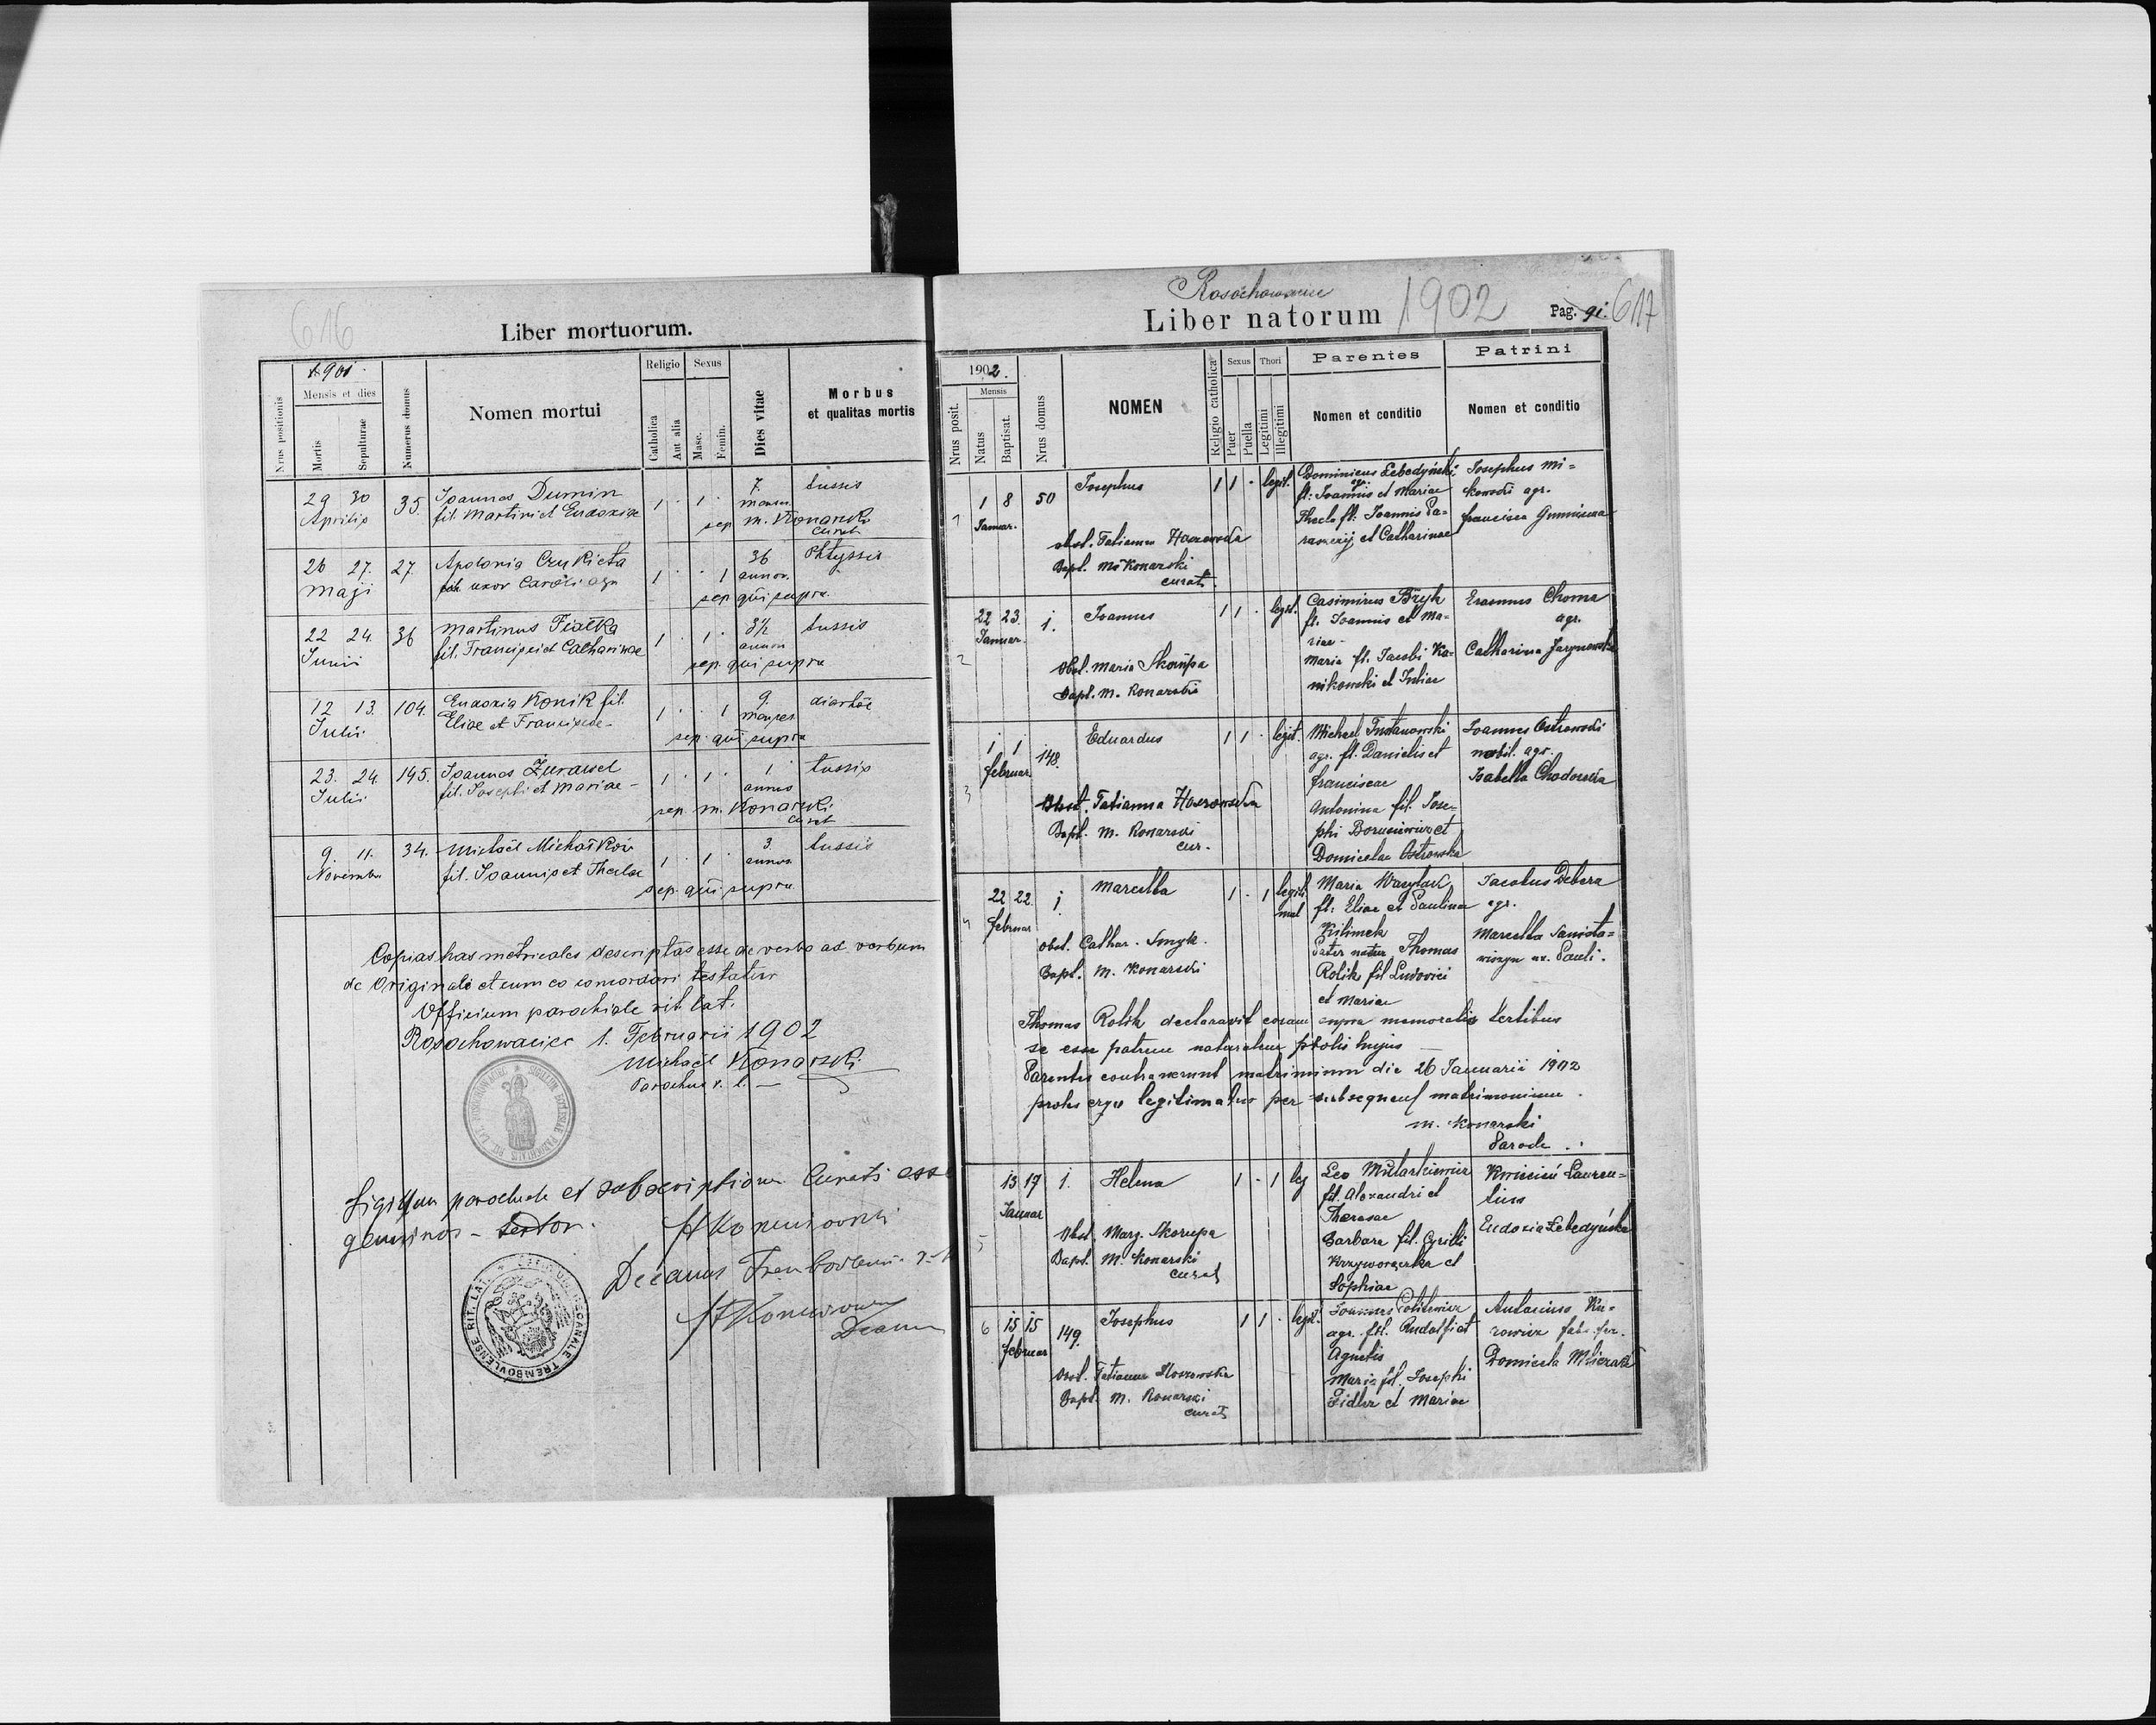 616
Liber mortuorum.
1901.
Nrus positionis
Mensis et dies
Mortis
Sepulturae
Numerus domus
Nomen mortui
Religio
Catholica
Aut alia
Sexus
Masc.
Femin.
Dies vitae
Morbus
et qualitas mortis
29 30 35. Joannes Dumin 1 · 1 · 7. tussis
Aprilis fil. Martini et Eudoxiae mens.
sep. M. Konarski
curat
26 27. 27. Apolonia 1 · · 1 36 Phtyssis
Maji uxor Caroli agr annor.
sep. qui supra
22 24. 36 Martinus Fiałka 1 · 1 · 3½ tussis
Junii fil. Francisci et Catharinae annor
sep. qui supra
12 13. 104. Eudoxia Konik fil. 1 · · 1 9. diarhöe
Julii Eliae et Franciscae menses
sep. qui supra
23. 24. 145. Joannes Żurawel 1 · 1 · 1 tussis
Julii fil. Josephi et Mariae annus
sep. M. Konarski
curat
9. 11. 34. Michaël 1 · 1 · 3. tussis
Novembr. fil. Joannis et Theclae annor.
sep. qui supra
Copias has metricales descriptas esse de verbo ad verbum
de Originali et cum eo concordari testatur
Officium parochiale rit. lat.
Rosochowaciec 1. Februarii 1902
Michaël Konarski
Parochus r. l.
Sigillum parochiale et subscriptionem Curati esse
genuinas - testor.
Decanus
DECANALE TREMBOVLENSE RIT. LAT.
Rosochowaciec
Liber natorum 1902 Pag. 91. 617
1902.
Nrus posit.
Mensis
Natus
Baptisat.
Nrus domus
NOMEN
Religio catholica
Sexus
Puer
Puella
Thori
Legitimi
Illegitimi
Parentes
Nomen et conditio
Patrini
Nomen et conditio
1 1 8 50 Josephus 1 1 · legit. Dominicus Lebedyński Josephus Mi=
Januar. agr. fl: Joannis et Mariae kowski agr.
Thecla fl: Joannis Pa= Francisca
obst. Tatianna et Catharinae
Bapt. M. Konarski
curat.
2 22 23. 1. Joannes 1 1 · legit. Casimirus Bżyk Erasmus Choma
Januar. fl. Joannis et Ma= agr.
riae - Catharina
Obst. Maria Skorupa Maria fl. Jacobi Ka=
Bapt. M. Konarski nikowski et Juliae
3 1 1 148. Eduardus 1 1 · legit. Michael Joannes Ostrowski
Februar agr. fl. Danielis et nobil. agr.
Franciscae Isabella Chodorska
Obst. Tatianna Antonina fil. Jose=
Bapt. M. Konarski phi et
cur. Domicelae Ostrowska
4 22 22. 1. Marcella 1 · 1 legiti Maria Wasylak Jacobus Debera
Februar mat fl: Eliae et Paulina agr.
Kilimek Marcella
Obst. Cathar. Smyk. Pater natur Thomas ux. Pauli.
Bapt. M. Konarski Rolik fil Ludovici
et Mariae
Thomas Rolik declaravit coram supra memoratis testibus
se esse patrem naturalem prolis hujus
Parentes contraxerunt matrimium die 26 Januarii 1902
proles ergo legitimatus per subsequens matrimonium.
M. Konarski
Paroch.
5 13 17 1. Helena 1 · 1 leg Leo Lauren=
Januar fil. Alexandri et tius
Theresae Eudoxia Lebedyńska
Obst. Mary. Skorupa Barbara fil. Cyrilli
Bapt. M. Konarski et
curat Sophiae
6 15 15 149. Josephus 1 1 · legit. Joannes Antoninus Ku=
Februar agr. fil. Rudolfi et
Agnetis Domicela
Obst. Tatianna Maria fil. Josephi
Bapt. M. Konarski Fidler et Mariae
curat